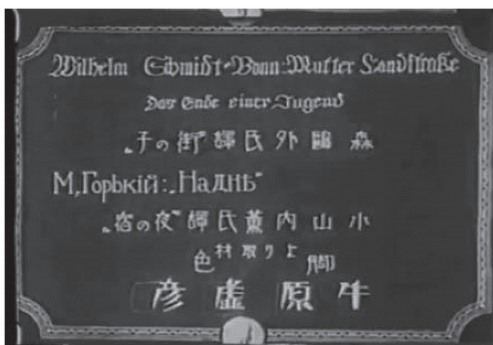 Wilhelm Schmidt-Bonn: Mutter Landstraße
Das Ende einer Jugend
森鷗外氏譯„街の子"
М, Горькій: „На днѣ"
小山内薫氏譯„夜の宿"
より取材
脚色
牛原虛彦